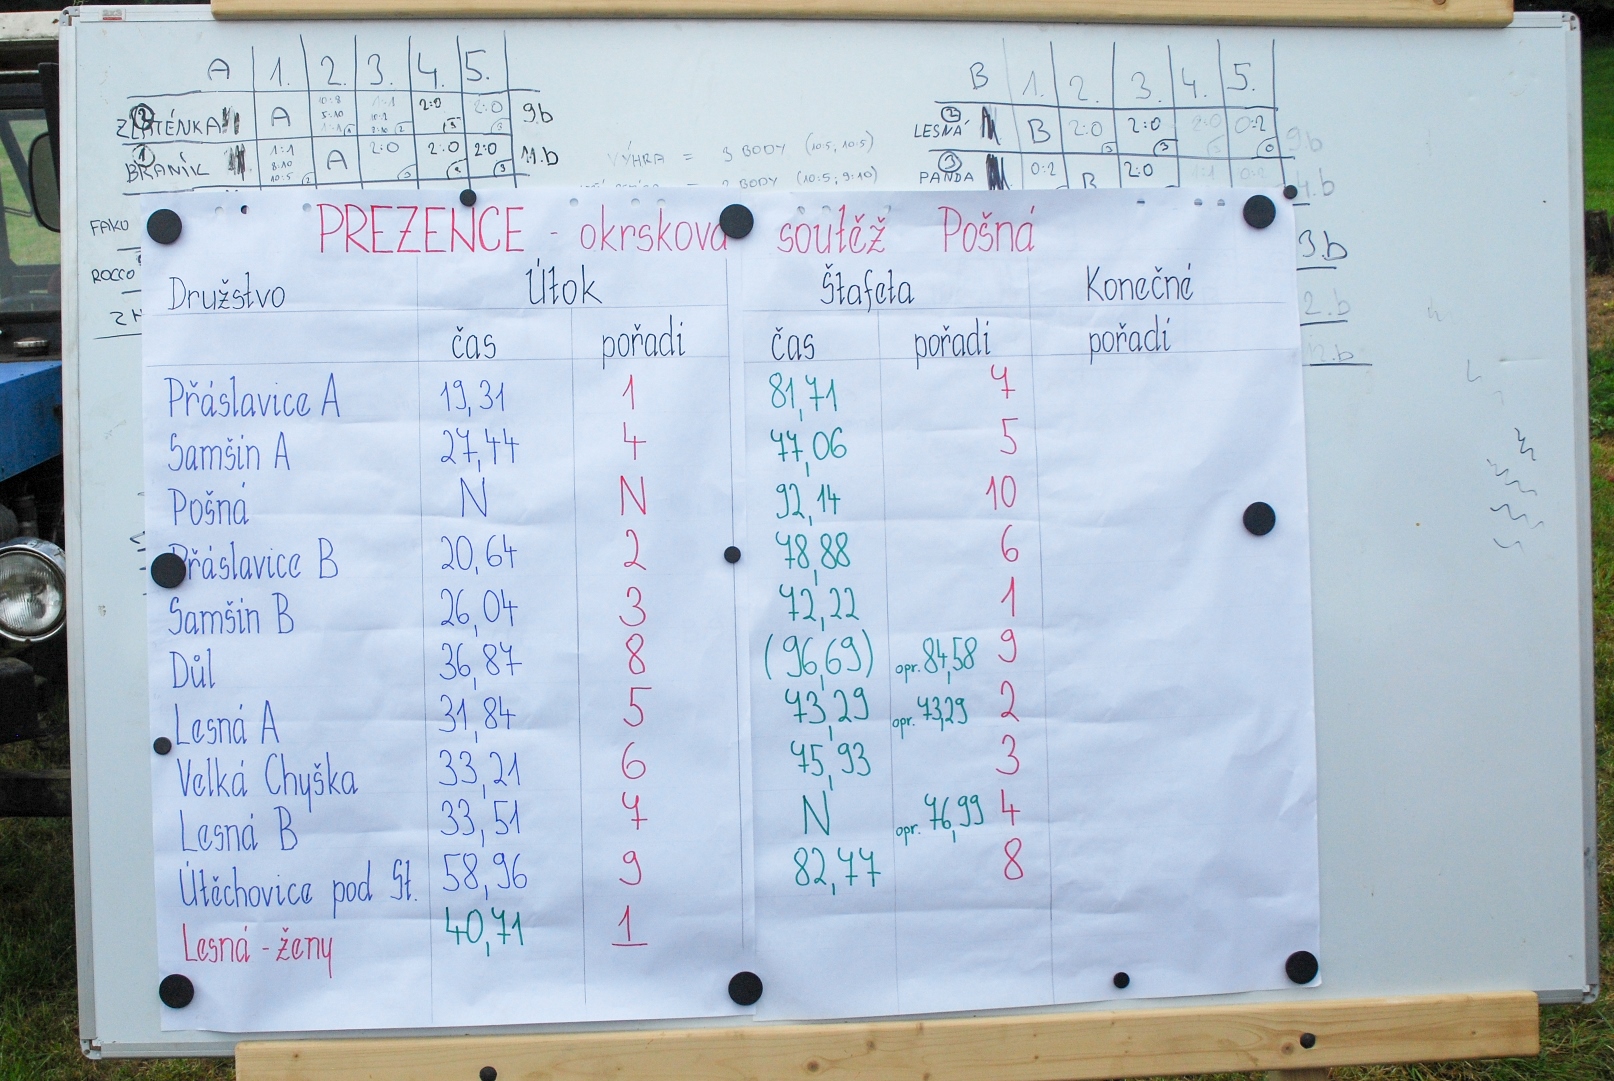 A 1. 2. 3. 4. 5.
A 2:0 2:0 9.b
BRANÍK 1:1 8:10 10:5 A 2:0 2:0 2:0 11.b
B 1. 2. 3. 4. 5.
LESNÁ B 2:0 2:0 2:0 0:2 9.b
PANDA 0:2 B 2:0 1:1 0:2
VÝHRA = 3 BODY (10:5, 10:5)
BODY (10:5, 9:10)
ROCCO
3.b
2.b
PREZENCE - okrsková soutěž Pošná
Družstvo Útok Štafeta Konečné
čas pořadí čas pořadí pořadí
Přáslavice A 19,31 1 81,71 7
Samšín A 27,44 4 77,06 5
Pošná N N 92,14 10
Přáslavice B 20,64 2 78,88 6
Samšín B 26,04 3 72,22 1
Důl 36,87 8 (96,69) opr. 84,58 9
Lesná A 31,84 5 73,29 opr. 73,29 2
Velká Chyška 33,21 6 75,93 3
Lesná B 33,51 7 N opr. 76,99 4
Útěchovice pod St. 58,96 9 82,77 8
Lesná - ženy 40,71 1